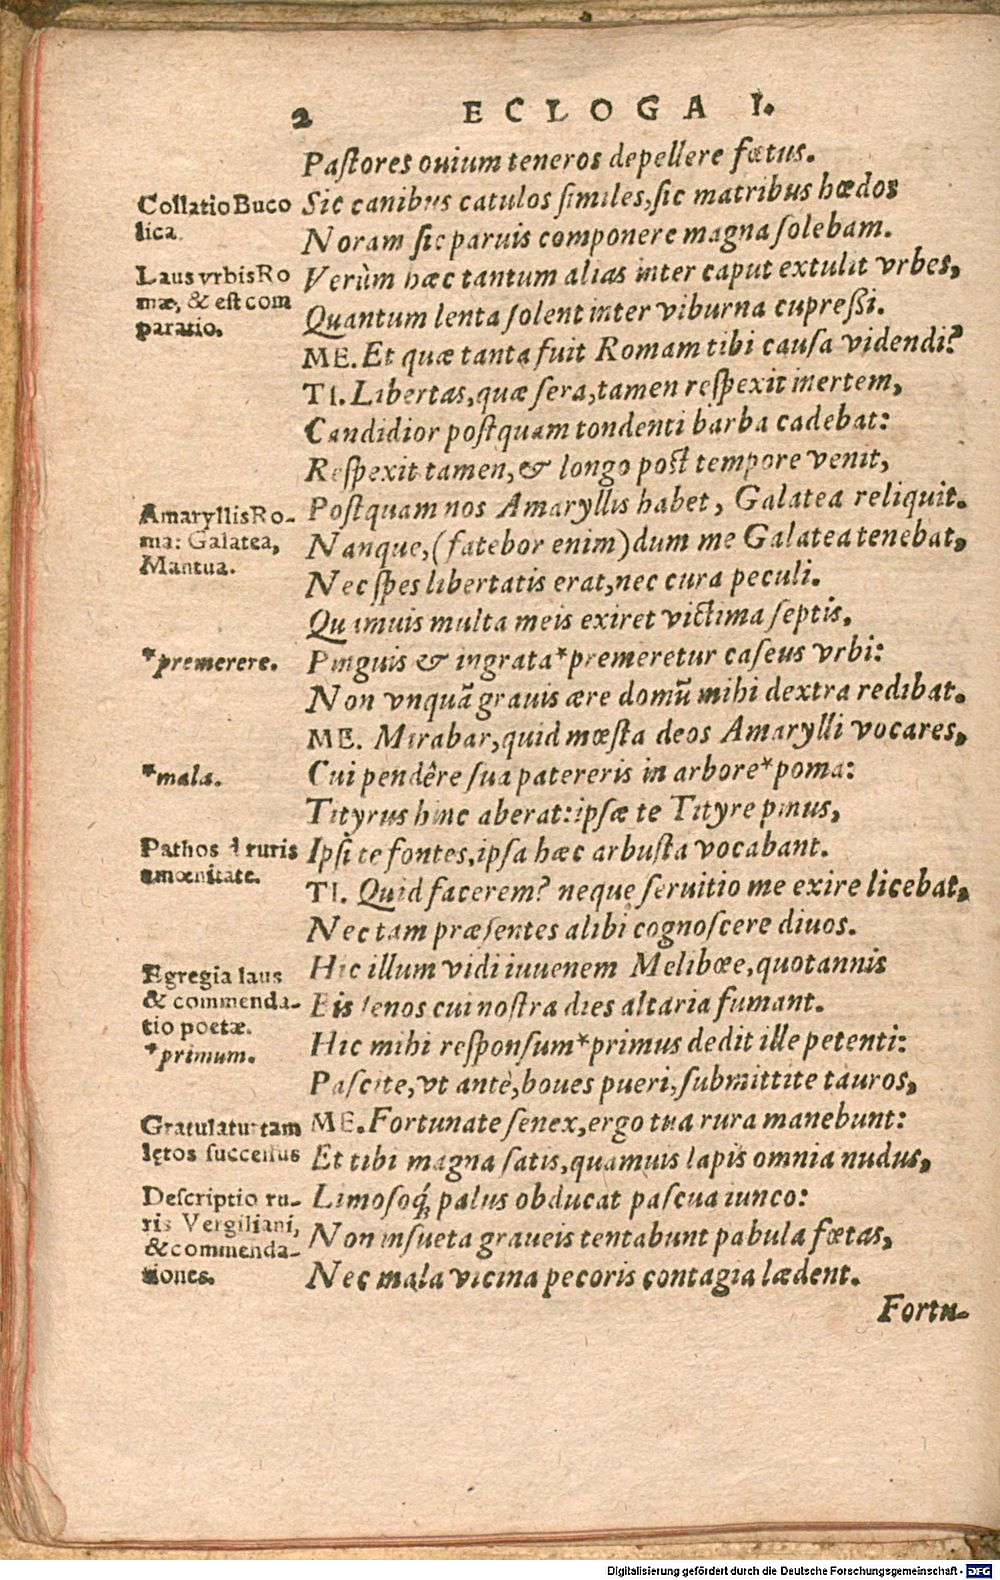 2 ECLOGA I.
Paſtores ouium teneros depellere fœtus.
Collatio Buco
lica.
Sic canibus catulos ſimiles, ſic matribus hœdos
Noram ſic paruis componere magna ſolebam.
Laus vrbis Ro
mæ, & eſt com
paratio.
Verùm hæc tantum alias inter caput extulit vrbes,
Quantum lenta ſolent inter viburna cupreſſi.
ME. Et quæ tanta fuit Romam tibi cauſa videndi?
TI. Libertas, quæ ſera, tamen reſpexit inertem,
Candidior poſtquam tondenti barba cadebat:
Reſpexit tamen, & longo poſt tempore venit,
Amaryllis Ro-
ma: Galatea,
Mantua.
Poſtquam nos Amaryllis habet, Galatea reliquit.
Nanque, (fatebor enim) dum me Galatea tenebat,
Nec ſpes libertatis erat, nec cura peculi.
Quamuis multa meis exiret victima ſeptis,
*premerere.
Pinguis & ingrata *premeretur caſeus vrbi:
Non vnquã grauis ære domũ mihi dextra redibat.
ME. Mirabar, quid mœſta deos Amarylli vocares,
*mala.
Cui pendêre ſua patereris in arbore *poma:
Tityrus hinc aberat: ipſæ te Tityre pinus,
Pathos à ruris
amœnitate.
Ipſi te fontes, ipſa hæc arbuſta vocabant.
TI. Quid facerem? neque ſeruitio me exire licebat,
Nec tam præſentes alibi cognoſcere diuos.
Egregia laus
& commenda-
tio poetæ.
*primum.
Hic illum vidi iuuenem Melibœe, quotannis
Bis ſenos cui noſtra dies altaria fumant.
Hic mihi reſponſum *primus dedit ille petenti:
Paſcite, vt antè, boues pueri, ſubmittite tauros,
Gratulatur tam
lętos ſucceſſus
ME. Fortunate ſenex, ergo tua rura manebunt:
Et tibi magna ſatis, quamuis lapis omnia nudus,
Deſcriptio ru-
ris Vergiliani,
& commenda-
tiones.
Limoſoq́; palus obducat paſcua iunco:
Non inſueta graueis tentabunt pabula fœtas,
Nec mala vicina pecoris contagia lædent.
Fortu-
Digitalisierung gefördert durch die Deutsche Forschungsgemeinschaft - DFG